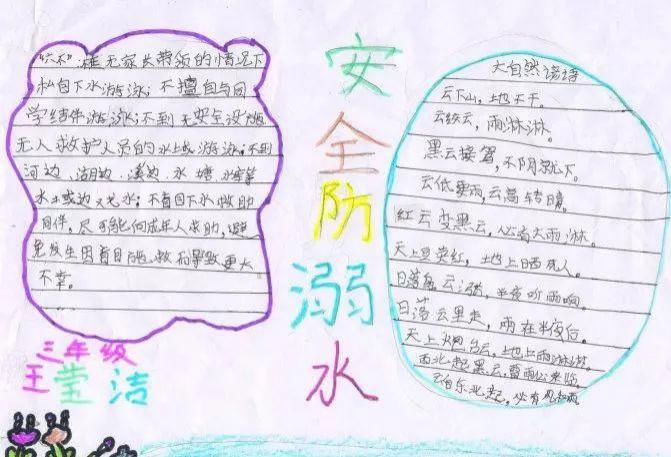 "六不":在无家长带领的情况下
私自下水游泳;不擅自与同
学结伴游泳;不到无安全设施
无人救护人员的水域游泳;不到
河边、湖边、溪边、水塘、
水;不盲目下水救助
同伴,尽可能向成年人求助,避
免发生因盲目施救而导致更大
不幸。
三年级
王莹洁
安
全
防
溺
水
大自然谚语
云下山,地不干。
云绞云,雨淋淋。
黑云接驾,不阴就下。
云低要雨,云高转晴。
红云变黑云,必有大雨淋。
天上豆荚红,地上晒死人。
日落乌云涨,半夜听雨响。
日落云里走,雨在半夜后。
天上乌云,地上雨淋淋。
西北起黑云,雷雨必来临
云自东北起,必有风